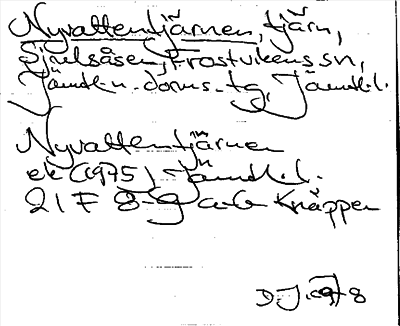 Nyvattentjärnen, tjärn,
Sjulsåsen, Frostvikens sn,
Jämtl:n. doms. tg, Jämtl.l.
Nyvattentjärnen
ek (1975) Jämtl.l.
21 F 8-g a-b Knäppen
D.J. 1978